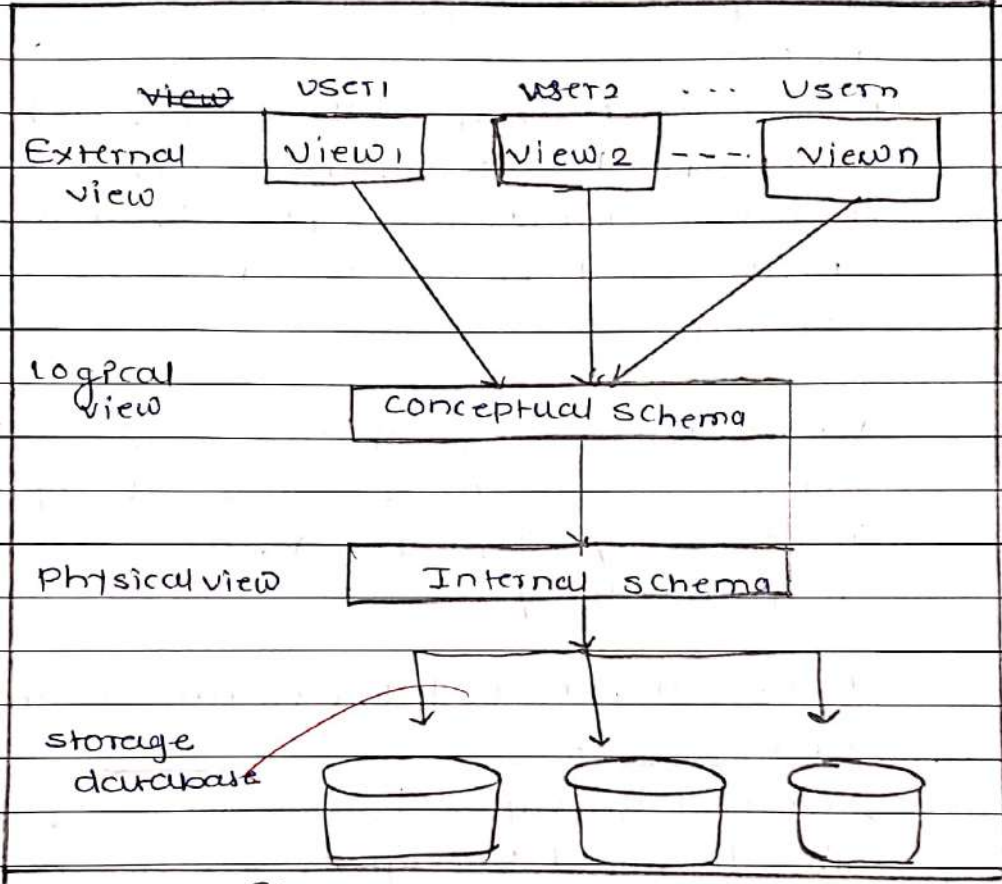 view User1 User2 ... Usern
External View1 View 2 ----. Viewn
view
Logical
view
Conceptual Schema
Physical view Internal Schema
Storage
database